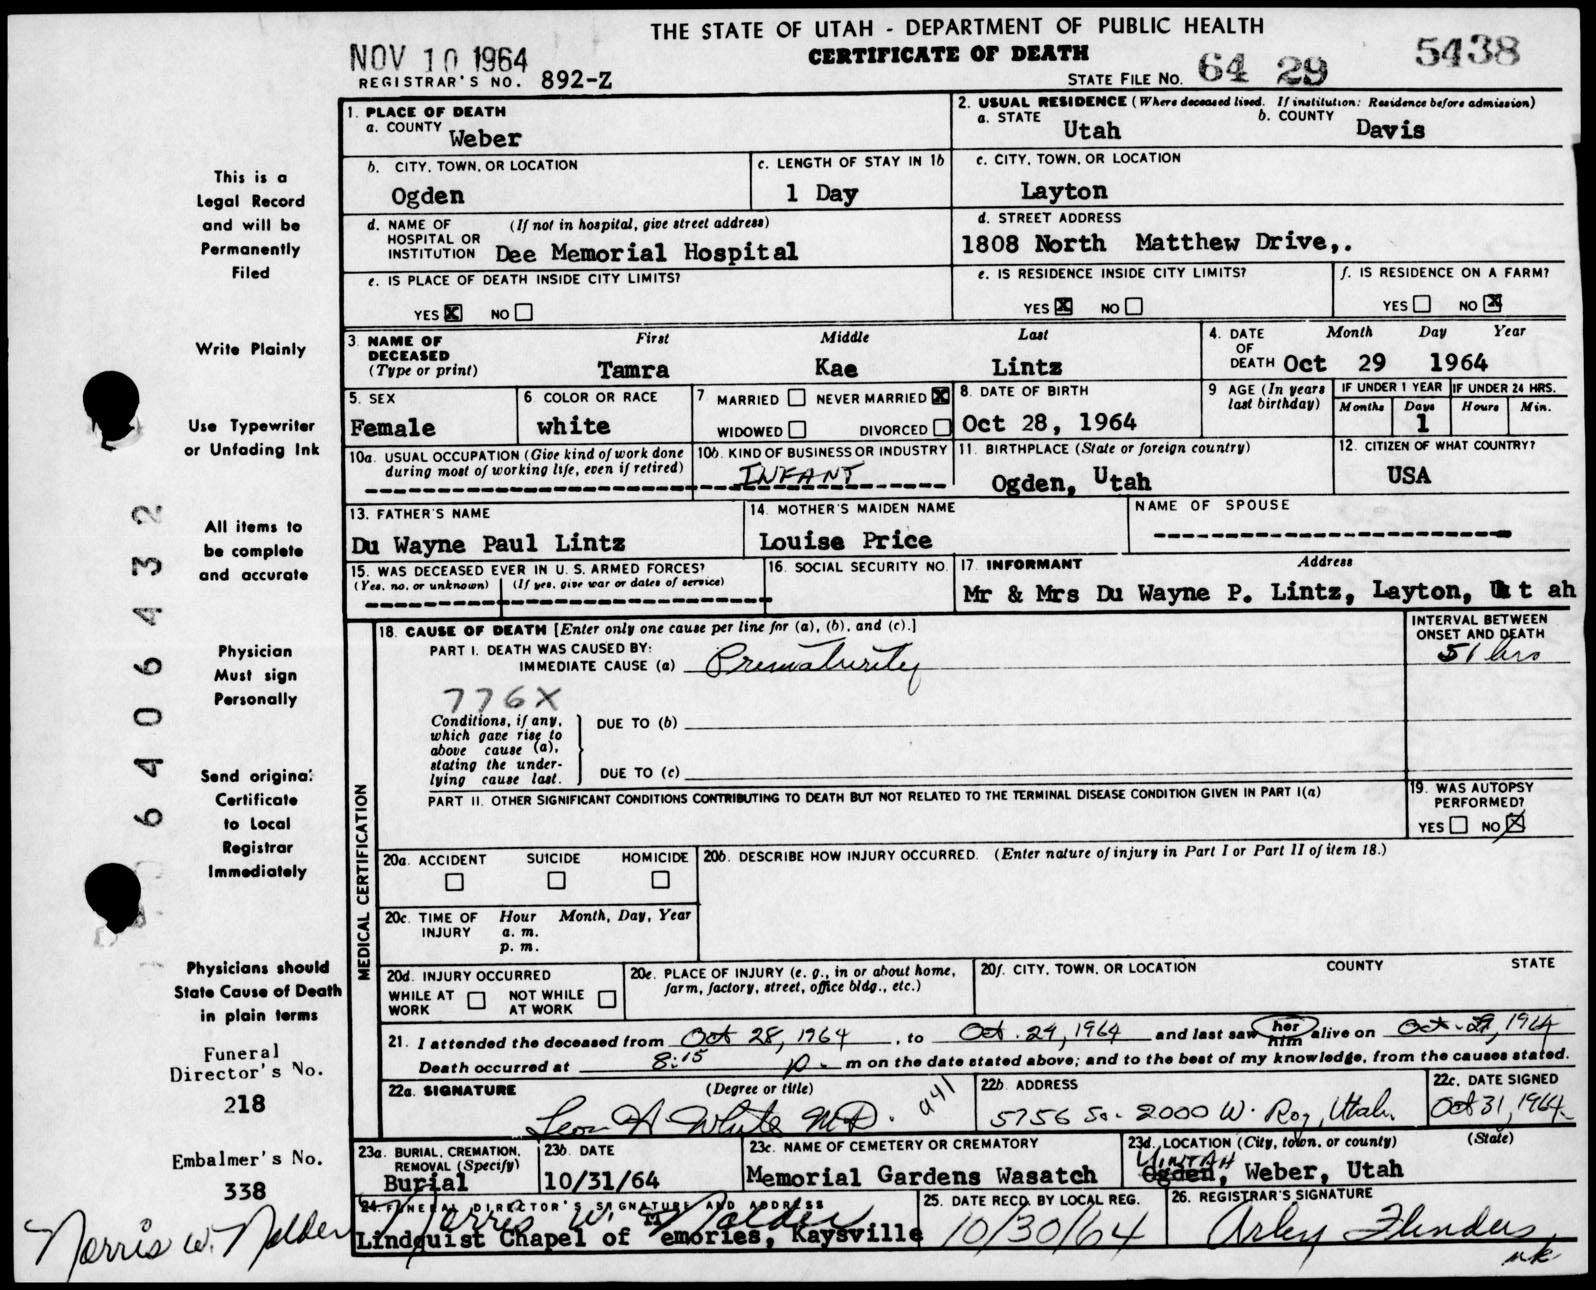 THE STATE OF UTAH - DEPARTMENT OF PUBLIC HEALTH
CERTIFICATE OF DEATH
NOV 10 1964
REGISTRAR'S NO. 892-Z
STATE FILE NO. 64 29 5438
This is a
Legal Record
and will be
Permanently
Filed
Write Plainly
Use Typewriter
or Unfading Ink
All items to
be complete
and accurate
Physician
Must sign
Personally
Send original
Certificate
to Local
Registrar
Immediately
Physicians should
State Cause of Death
in plain terms
Funeral
Director's No.
218
Embalmer's No.
338
Norris W. Nalder
6406432
1. PLACE OF DEATH
a. COUNTY Weber
2. USUAL RESIDENCE (Where deceased lived. If institution: Residence before admission)
a. STATE Utah b. COUNTY Davis
b. CITY, TOWN, OR LOCATION Ogden
c. LENGTH OF STAY IN 1b 1 Day
c. CITY, TOWN, OR LOCATION Layton
d. NAME OF HOSPITAL OR INSTITUTION (If not in hospital, give street address) Dee Memorial Hospital
d. STREET ADDRESS 1808 North Matthew Drive,.
e. IS PLACE OF DEATH INSIDE CITY LIMITS? YES X NO
e. IS RESIDENCE INSIDE CITY LIMITS? YES X NO
f. IS RESIDENCE ON A FARM? YES NO X
3. NAME OF DECEASED (Type or print) First Middle Last
Tamra Kae Lintz
4. DATE OF DEATH Month Day Year
Oct 29 1964
5. SEX Female
6. COLOR OR RACE white
7. MARRIED NEVER MARRIED X WIDOWED DIVORCED
8. DATE OF BIRTH Oct 28, 1964
9 AGE (In years last birthday) IF UNDER 1 YEAR Months Days 1 IF UNDER 24 HRS. Hours Min.
10a. USUAL OCCUPATION (Give kind of work done during most of working life, even if retired)
10b. KIND OF BUSINESS OR INDUSTRY INFANT
11. BIRTHPLACE (State or foreign country) Ogden, Utah
12. CITIZEN OF WHAT COUNTRY? USA
13. FATHER'S NAME Du Wayne Paul Lintz
14. MOTHER'S MAIDEN NAME Louise Price
NAME OF SPOUSE
15. WAS DECEASED EVER IN U. S. ARMED FORCES?
(Yes, no, or unknown) (If yes, give war or dates of service)
16. SOCIAL SECURITY NO.
17. INFORMANT Address
Mr & Mrs Du Wayne P. Lintz, Layton, Ut ah
MEDICAL CERTIFICATION
18. CAUSE OF DEATH [Enter only one cause per line for (a), (b), and (c).]
INTERVAL BETWEEN ONSET AND DEATH
PART I. DEATH WAS CAUSED BY:
IMMEDIATE CAUSE (a) Prematurity 51 hrs
776X
Conditions, if any, which gave rise to above cause (a), stating the underlying cause last.
DUE TO (b)
DUE TO (c)
PART II. OTHER SIGNIFICANT CONDITIONS CONTRIBUTING TO DEATH BUT NOT RELATED TO THE TERMINAL DISEASE CONDITION GIVEN IN PART I(a)
19. WAS AUTOPSY PERFORMED? YES NO X
20a. ACCIDENT SUICIDE HOMICIDE
20b. DESCRIBE HOW INJURY OCCURRED. (Enter nature of injury in Part I or Part II of item 18.)
20c. TIME OF INJURY Hour Month, Day, Year
a. m.
p. m.
20d. INJURY OCCURRED
WHILE AT WORK NOT WHILE AT WORK
20e. PLACE OF INJURY (e. g., in or about home, farm, factory, street, office bldg., etc.)
20f. CITY, TOWN, OR LOCATION COUNTY STATE
21. I attended the deceased from Oct 28, 1964, to Oct. 29, 1964 and last saw her him alive on Oct. 29, 1964
Death occurred at 8:15 p. m on the date stated above; and to the best of my knowledge, from the causes stated.
22a. SIGNATURE (Degree or title) Leon H White M.D. a41
22b. ADDRESS 5756 So. 2000 W. Roy, Utah.
22c. DATE SIGNED Oct 31, 1964
23a. BURIAL, CREMATION, REMOVAL (Specify) Burial
23b. DATE 10/31/64
23c. NAME OF CEMETERY OR CREMATORY Memorial Gardens Wasatch
23d. LOCATION (City, town, or county) (State)
UINTAH Ogden, Weber, Utah
24. FUNERAL DIRECTOR'S SIGNATURE AND ADDRESS Norris W. Nalder
Lindquist Chapel of Memories, Kaysville
25. DATE RECD. BY LOCAL REG. 10/30/64
26. REGISTRAR'S SIGNATURE Arley Flinders
nk